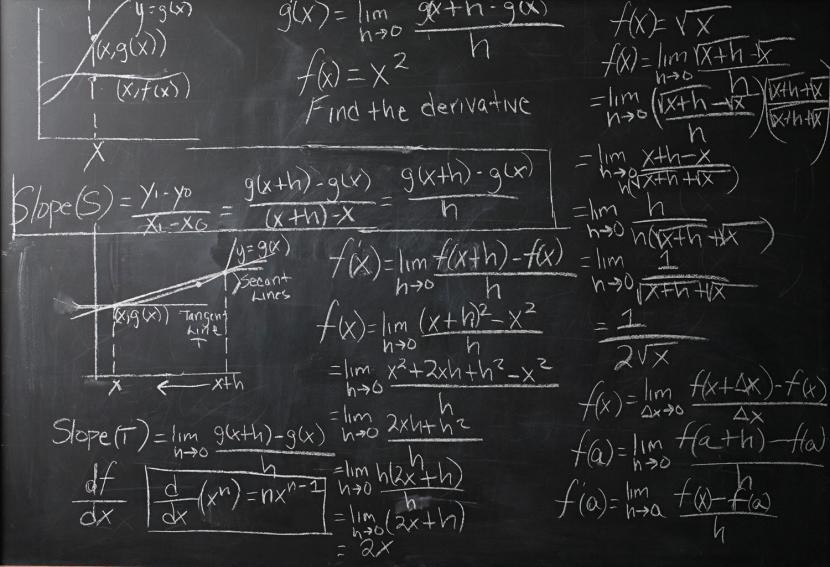 y=g(x)
(x,g(x))
(x,f(x))
x
g'(x) = lim h→0 g(x+h - g(x) / h
f(x) = x²
Find the derivative
Slope(S) = y₁-y₀ / x₁-x₀ = g(x+h)-g(x) / (x+h)-x = g(x+h)-g(x) / h
y=g(x)
Secant
Lines
(x,g(x))
Tangent
Line
T
x ← x+h
Slope(T) = lim h→0 g(x+h)-g(x) / h
df/dx
d/dx (xⁿ) = nxⁿ⁻¹
f'(x) = lim h→0 f(x+h)-f(x) / h
f(x) = lim h→0 (x+h)²-x² / h
= lim h→0 x²+2xh+h²-x² / h
= lim h→0 2xh+h² / h
= lim h→0 h(2x+h) / h
= lim h→0 (2x+h)
= 2x
f(x) = √x
f(x) = lim h→0 √x+h -√x / h
= lim h→0 (√x+h -√x / h)(√x+h+√x / √x+h+√x)
= lim h→0 x+h-x / h(√x+h+√x)
= lim h→0 h / h(√x+h+√x)
= lim h→0 1 / √x+h+√x
= 1 / 2√x
f(x) = lim Δx→0 f(x+Δx)-f(x) / Δx
f(a) = lim h→0 f(a+h)-f(a) / h
f'(a) = lim h→a f(x)-f(a) / h